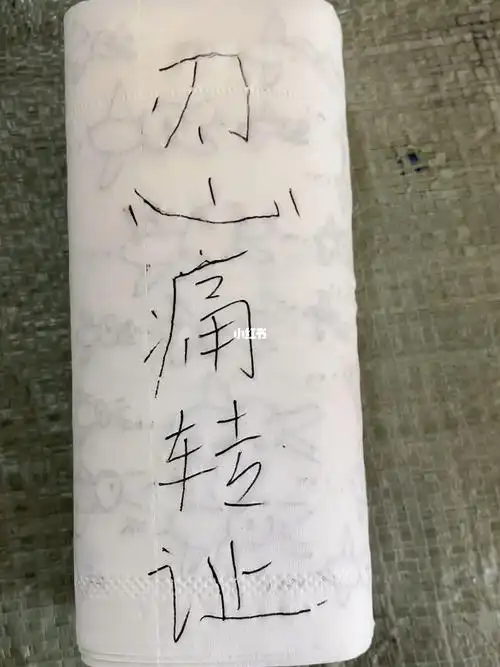 忍痛转让
小红书